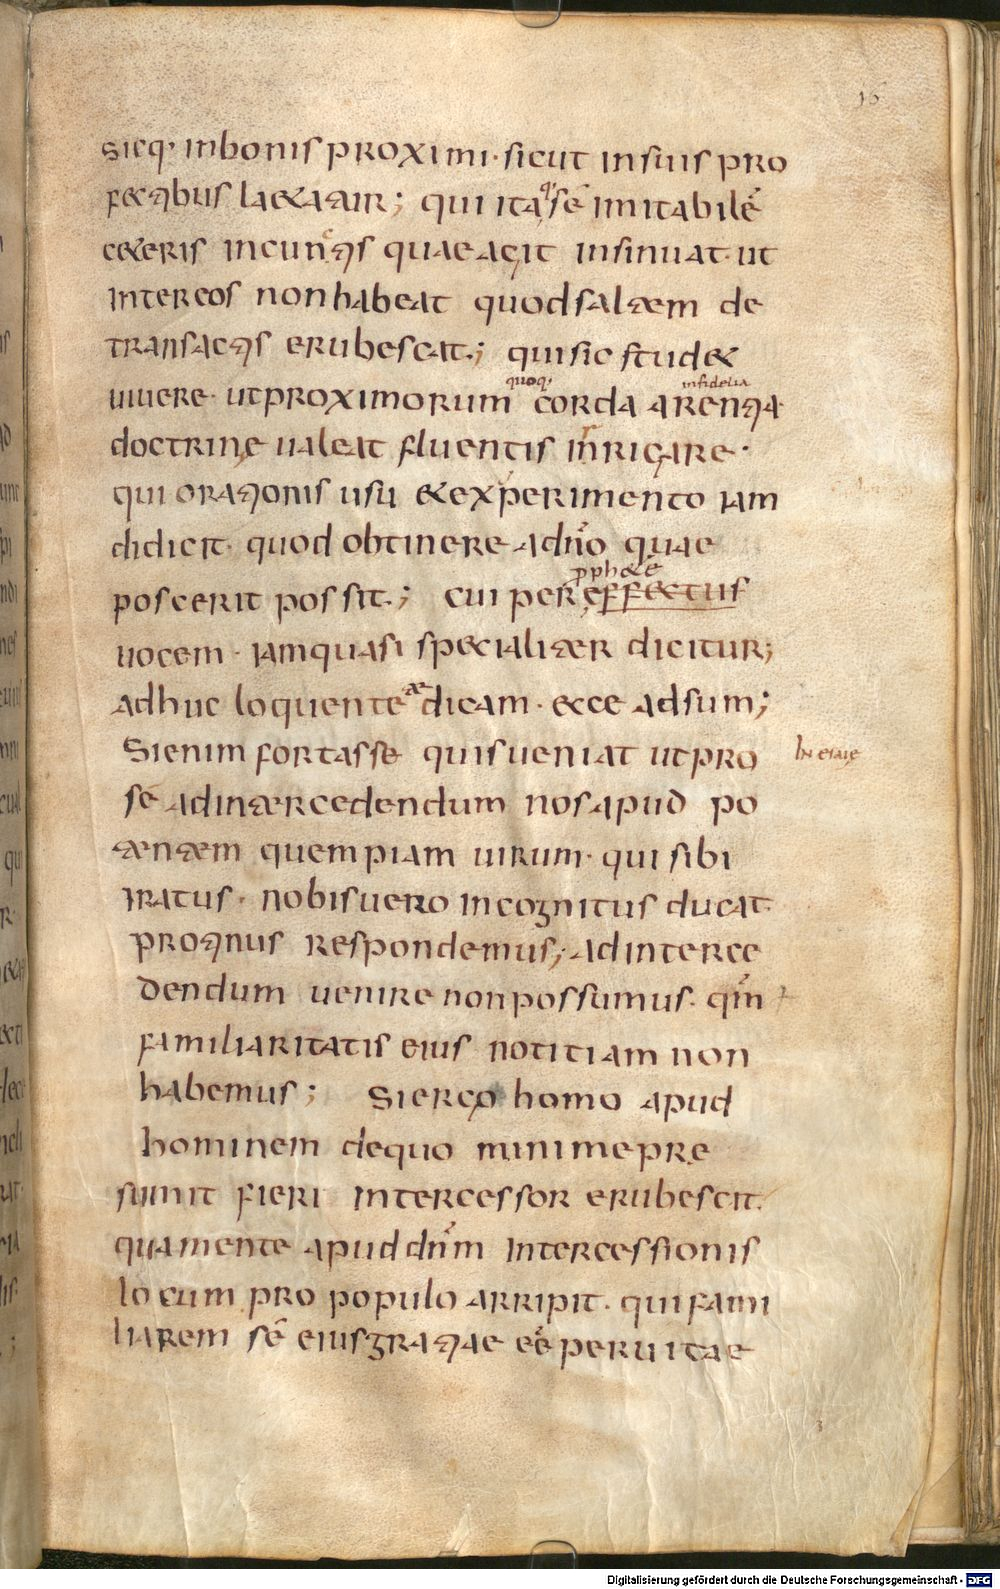 16
sicq· in bonis proximi· sicut in suis pro
fectibus laetatur; qui ita q· sē imitabilē
ceteris in cunctis quae agit insinuat· ut
inter eos non habeat quod saltem de
transactis erubescat; qui sic studet
vivere· ut proximorum quoq· corda arentia infidelia
doctrinę valeat fluentis inrigare·
qui orationis usu & experimento iam
didicit· quod obtinere a dn̄o quae
poscerit possit; cui per ęffectus pphetę
vocem· iam quasi specialiter dicitur;
adhuc loquente te dicam· ecce adsum;
Si enim fortasse quis veniat ut pro In eiaię
sē ad intercedendum nos apud po
tentem quempiam virum· qui sibi
iratus· nobis vero incognitus ducat·
protinus respondemus; ad interce
dendum venire non possumus· qm̄
familiaritatis eius notitiam non
habemus; Si ergo homo apud
hominem de quo minime pre
sumit fieri intercessor erubescit·
qua mente apud dn̄m intercessionis
locum pro populo arripit· qui fami
liarem sē eius gratiae eē per vitae
Digitalisierung gefördert durch die Deutsche Forschungsgemeinschaft - DFG